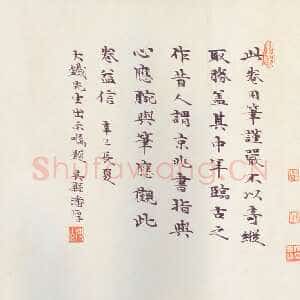 此卷用筆謹嚴不以奇縱
取勝蓋其中年臨古之
作昔人謂京兆書指與
心應腕與筆應觀此
卷益信 辛亥長夏
大鐵先生出示囑題 吳縣潘厚
Shufawang.CN